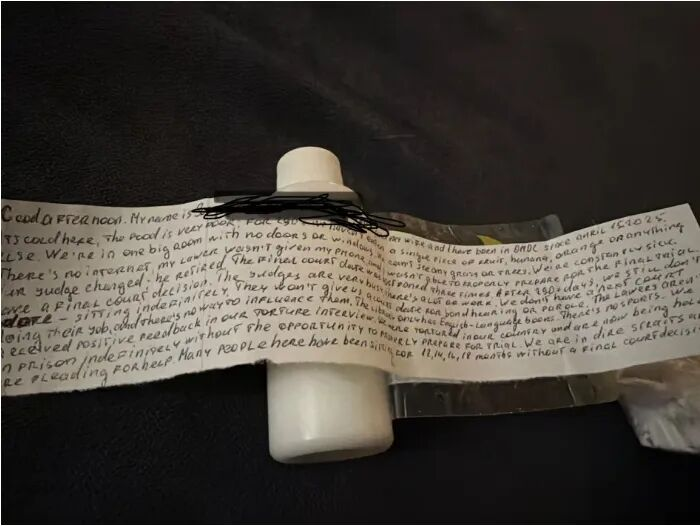 Good afternoon. My name is my wife and I have been in OMDC since april 15 2025.
It's cold here, the food is very poor. For 280 a single piece of fruit, banana, orange or anything
else. We're in one big room with no doors or windows. We can't see any grass or trees. We are constantly sick.
There's no internet, my lawer wasn't given my phone, and wasn't able to properly prepare for the final trial.
Our judge changed. He retired. The final court date was postponed three times. After 280 days, we still don't
have a final court decision. The judges are very busy. There's a lot of work. We don't have a next court
date - sitting indefinitely. They won't give us a date for bond hearing or parole. The lawers aren't
doing their job, and there's no way to influence them. The library only has English-language books. There's no sports.
received positive feedback in our torture interview. We are tortured in our country and are now being held
in prison indefinitely without the opportunity to properly prepare for trial. We are in dire straits and
are pleading for help. Many people here have been sitting for 12, 14, 16, 18 months without a final court decision